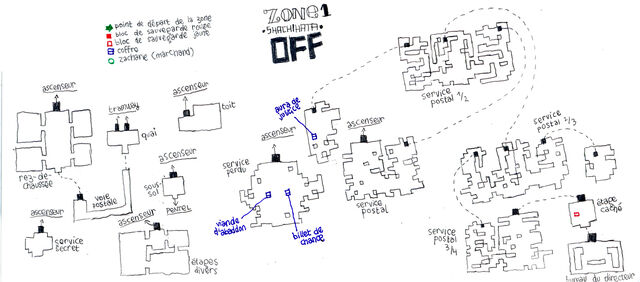 point de départ de la zone
bloc de sauvegarde rouge
bloc de sauvegarde jaune
coffre
zacharie (marchand)
ZONE 1
SHACHIHATA
OFF
ascenseur
rez-de-
chaussée
tramway
quai
voie
postale
ascenseur
toit
ascenseur
sous-
sol
PENTEL
ascenseur
service
secret
ascenseur
étages
divers
ascenseur
service
perdu
aura de
viande
d'abaddon
billet de
chance
ascenseur
service
postal
service
postal 1/2
service
postal
service
postal 3/4
étage
caché
bureau du directeur